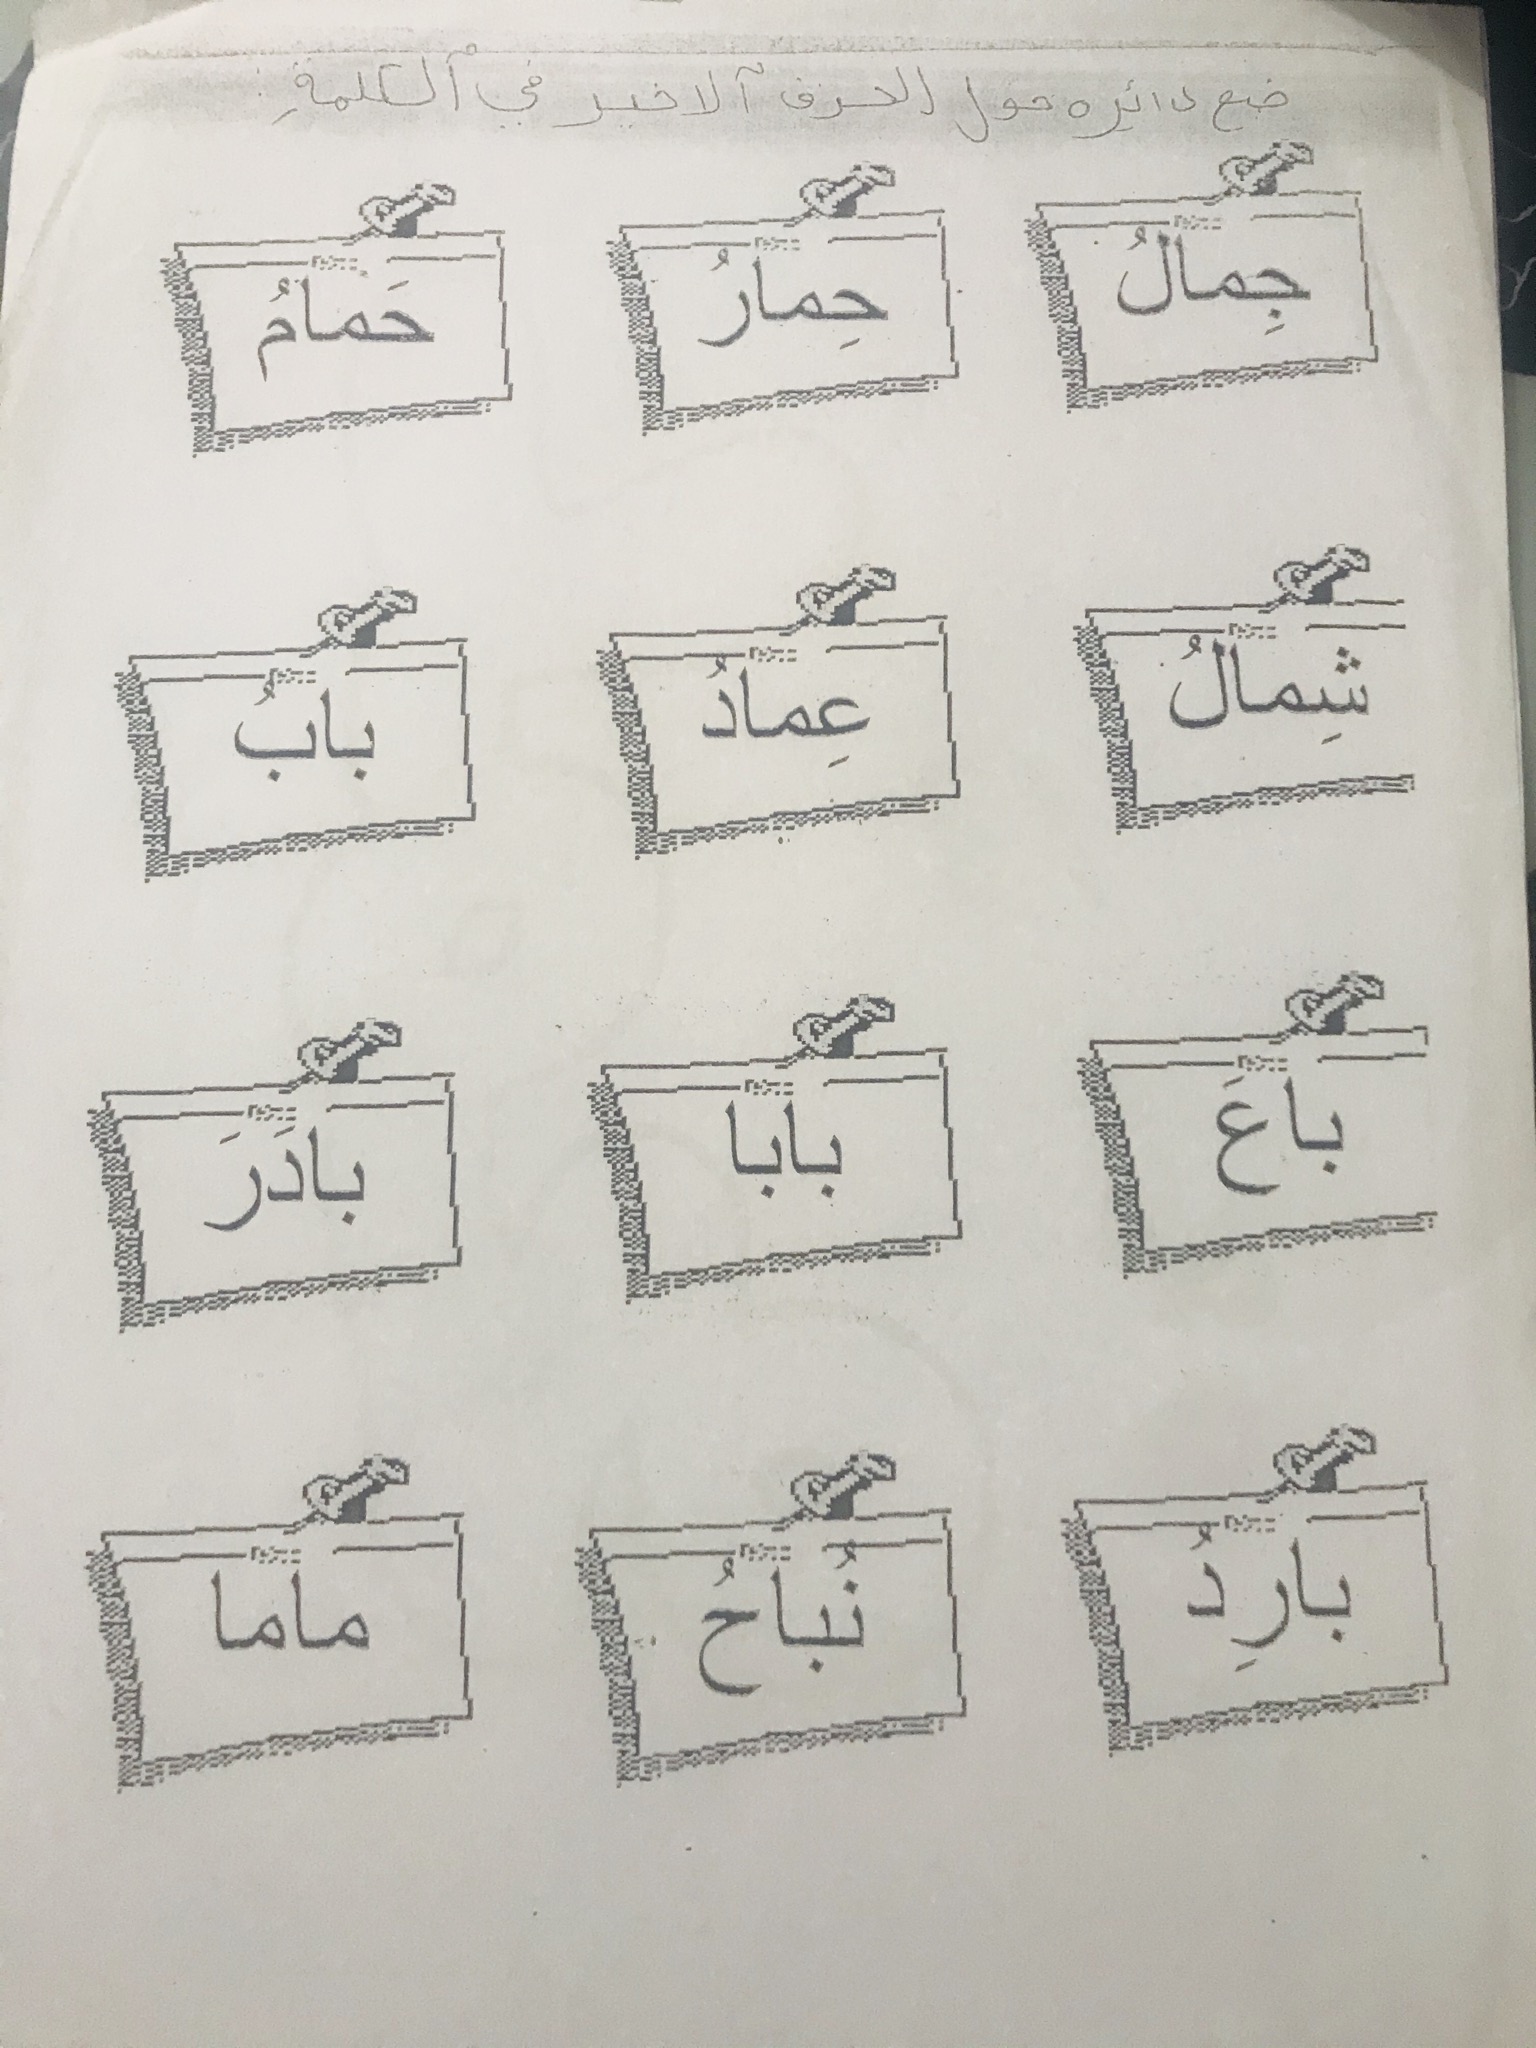 ضع دائره حول الحرف الاخير في الكلمةِ:
جِمالُ حِمارُ حَمامُ
شِمالُ عِمادُ بابُ
باعَ بابا بادَرَ
بارِدُ نُباحُ ماما